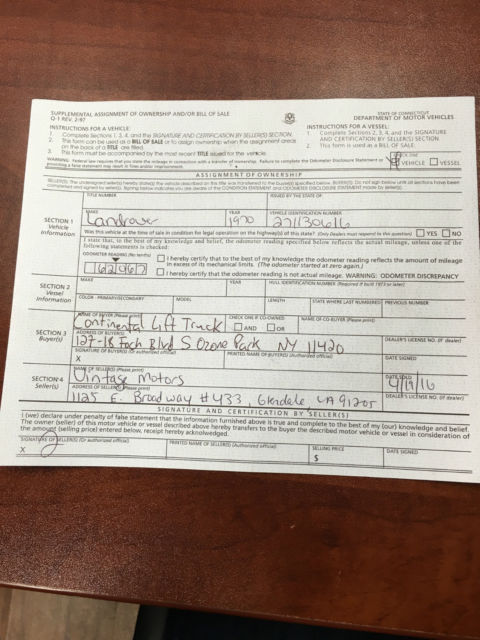 SUPPLEMENTAL ASSIGNMENT OF OWNERSHIP AND/OR BILL OF SALE
Q-1 REV. 2/97
STATE OF CONNECTICUT
DEPARTMENT OF MOTOR VEHICLES
INSTRUCTIONS FOR A VEHICLE:
1. Complete Sections 1, 3, 4, and the SIGNATURE AND CERTIFICATION BY SELLER(S) SECTION.
2. This form can be used as a BILL OF SALE or to assign ownership when the assignment areas
on the back of a TITLE are filled.
3. This form must be accompanied by the most recent TITLE issued for the vehicle.
INSTRUCTIONS FOR A VESSEL:
1. Complete Sections 2, 3, 4, and the SIGNATURE
AND CERTIFICATION BY SELLER(S) SECTION.
2. This form is used as a BILL OF SALE.
WARNING: Federal law requires that you state the mileage in connection with a transfer of ownership. Failure to complete the Odometer Disclosure Statement or
providing a false statement may result in fines and/or imprisonment.
CHECK ONE
VEHICLE VESSEL
ASSIGNMENT OF OWNERSHIP
TITLE NUMBER
ISSUED BY THE STATE OF
SECTION 1
Vehicle
Information
MAKE
Landrover
YEAR
1970
VEHICLE IDENTIFICATION NUMBER
27130616
Was this vehicle at the time of sale in condition for legal operation on the highway(s) of this state? (Only Dealers must respond to this question) YES NO
I state that, to the best of my knowledge and belief, the odometer reading specified below reflects the actual mileage, unless one of the
following statements is checked:
ODOMETER READING (No tenths)
162967
I hereby certify that to the best of my knowledge the odometer reading reflects the amount of mileage
in excess of its mechanical limits. (The odometer started at zero again.)
I hereby certify that the odometer reading is not the actual mileage. WARNING: ODOMETER DISCREPANCY
SECTION 2
Vessel
Information
MAKE
YEAR
HULL IDENTIFICATION NUMBER (Required if built 1973 or later)
COLOR - PRIMARY/SECONDARY
MODEL
LENGTH
STATE WHERE LAST NUMBERED
PREVIOUS NUMBER
SECTION 3
Buyer(s)
NAME OF BUYER (Please print)
Continental Lift Truck
CHECK ONE IF CO-OWNED
AND OR
NAME OF CO-BUYER (Please print)
ADDRESS OF BUYER(S)
127-18 Foch Blvd S Ozone Park NY 11420
DEALER'S LICENSE NO. (If dealer)
SIGNATURE OF BUYER(S) (Authorized official)
X
PRINTED NAME OF BUYER(S) (Authorized official)
DATE SIGNED
SECTION 4
Seller(s)
NAME OF SELLER(S) (Please print)
Vintage Motors
DATE SOLD
4/19/16
ADDRESS OF SELLER(S) (Please print)
1125 E. Broadway #433, Glendale CA 91205
DEALER'S LICENSE NO. (If dealer)
SIGNATURE AND CERTIFICATION BY SELLER(S)
I (we) declare under penalty of false statement that the information furnished above is true and complete to the best of my (our) knowledge and belief.
The owner (seller) of this motor vehicle or vessel described above hereby transfers to the buyer the described motor vehicle or vessel in consideration of
the amount (selling price) entered below, receipt hereby acknowledged.
SIGNATURE OF SELLER(S) (Or authorized official)
X
PRINTED NAME OF SELLER(S) (Authorized official)
SELLING PRICE
$
DATE SIGNED